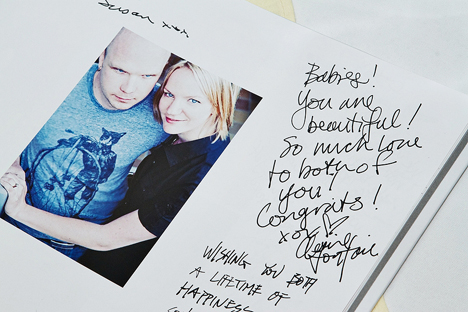 Susan xxx
Babies!
You are
beautiful!
So much love
to both of
you!
Congrats!
xox
WISHING YOU BOTH
A LIFETIME OF
HAPPINESS